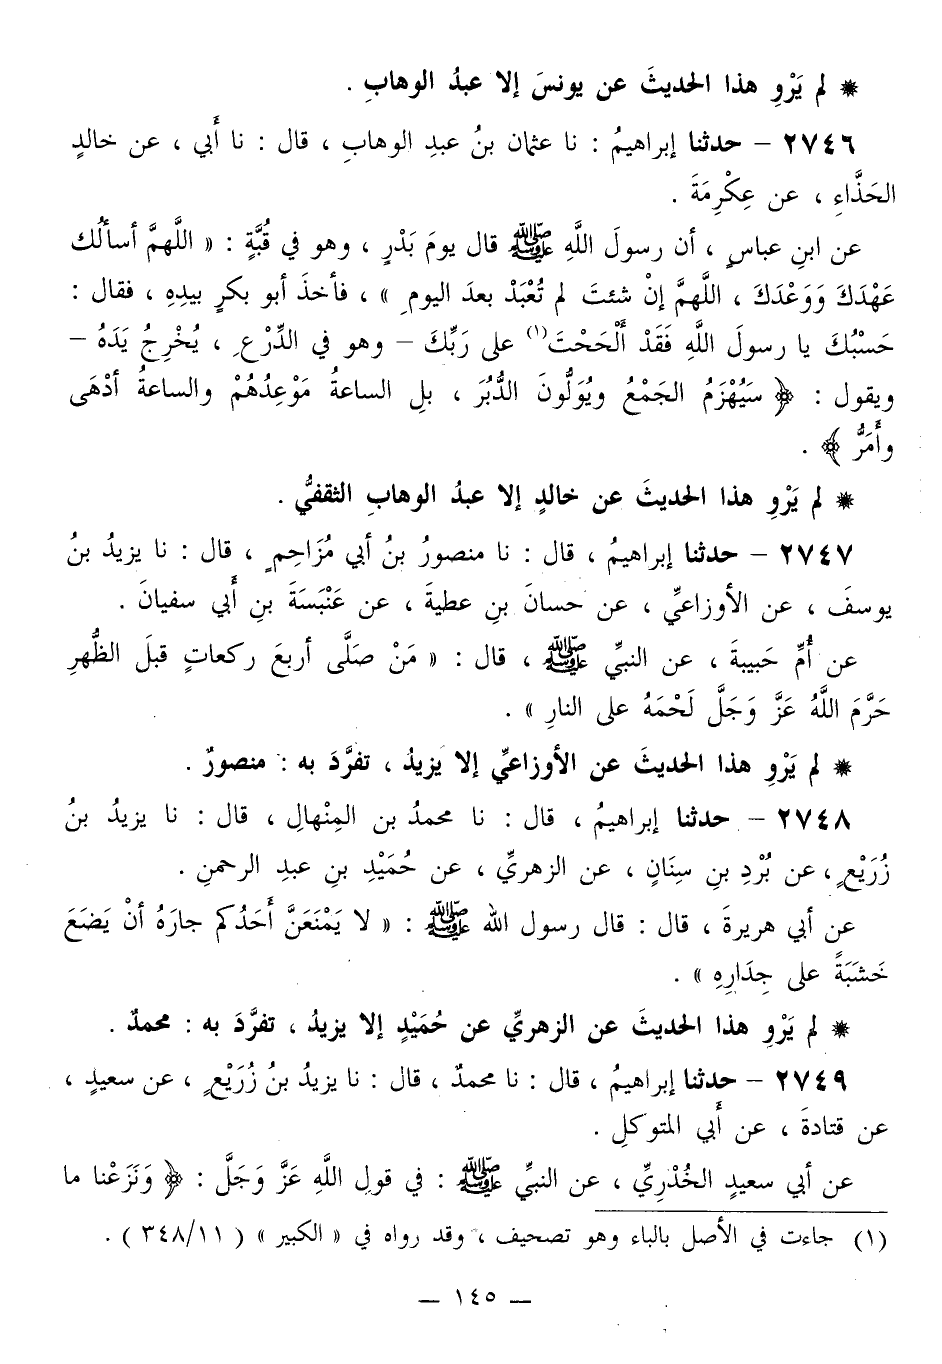 * لم يَرْوِ هذا الحديثَ عن يونسَ إلا عبدُ الوهابِ .
٢٧٤٦ – حدثنا إبراهيمُ : نا عثمان بنُ عبدِ الوهابِ ، قال : نا أَبي ، عن خالدٍ
الحَذَّاءِ ، عن عِكْرِمَةَ .
عن ابنِ عباسٍ ، أن رسولَ اللَّهِ ﷺ قال يومَ بَدْرٍ ، وهو في قُبَّةٍ : « اللَّهمَّ أسألُك
عَهْدَكَ وَوَعْدَكَ ، اللَّهمَّ إنْ شئتَ لم تُعْبَدْ بعدَ اليومِ » ، فأخذَ أبو بكرٍ بيدِهِ ، فقال :
حَسْبُكَ يا رسولَ اللَّهِ فَقَدْ أَلْحَحْتَ(١) على رَبِّكَ – وهو في الدِّرْعِ ، يُخْرِجُ يَدَهُ –
ويقول : ﴿ سَيُهْزَمُ الجَمْعُ ويُوَلُّونَ الدُّبُرَ ، بلِ الساعةُ مَوْعِدُهُمْ والساعةُ أدْهَى
وأَمَرُّ ﴾ .
* لم يَرْوِ هذا الحديثَ عن خالدٍ إلا عبدُ الوهابِ الثقفيُّ .
٢٧٤٧ – حدثنا إبراهيمُ ، قال : نا منصورُ بنُ أبي مُزَاحِمٍ ، قال : نا يزيدُ بنُ
يوسفَ ، عن الأوزاعيِّ ، عن حسانَ بنِ عطيةَ ، عن عَنْبَسَةَ بنِ أَبي سفيانَ .
عن أُمِّ حَبيبةَ ، عن النبيِّ ﷺ ، قال : « مَنْ صَلَّى أربعَ ركعاتٍ قبلَ الظُّهرِ
حَرَّمَ اللَّهُ عَزَّ وَجَلَّ لَحْمَهُ على النارِ » .
* لم يَرْوِ هذا الحديثَ عن الأوزاعيِّ إلا يزيدُ ، تفرَّدَ به : منصورٌ .
٢٧٤٨ – حدثنا إبراهيمُ ، قال : نا محمدُ بن المِنْهالِ ، قال : نا يزيدُ بنُ
زُرَيْعٍ ، عن بُرْدِ بنِ سِنَانٍ ، عن الزهريِّ ، عن حُمَيْدِ بنِ عبدِ الرحمنِ .
عن أبي هريرةَ ، قال : قال رسول الله ﷺ : « لا يَمْنَعَنَّ أَحَدُكم جارَهُ أنْ يَضَعَ
خَشَبَةً على جِدَارِهِ » .
* لم يَرْوِ هذا الحديثَ عن الزهريِّ عن حُمَيْدٍ إلا يزيدُ ، تفرَّدَ به : محمدٌ .
٢٧٤٩ – حدثنا إبراهيمُ ، قال : نا محمدٌ ، قال : نا يزيدُ بنُ زُرَيْعٍ ، عن سعيدٍ ،
عن قتادةَ ، عن أَبي المتوكلِ .
عن أبي سعيدٍ الخُدْريِّ ، عن النبيِّ ﷺ : في قولِ اللَّهِ عَزَّ وَجَلَّ : ﴿ وَنَزَعْنا ما
(١) جاءت في الأصل بالباء وهو تصحيف ، وقد رواه في « الكبير » ( ٣٤٨/١١ ) .
– ١٤٥ –